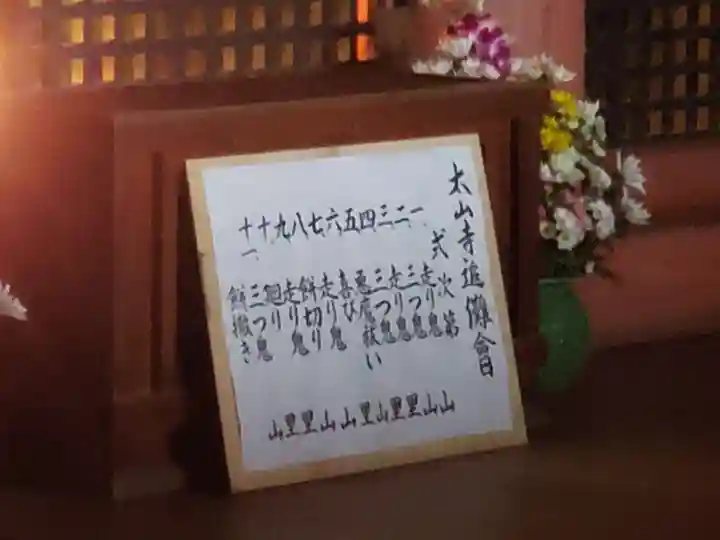 太山寺追儺會
式次第
一、
二、
三、
四、
五、
六、
七、
八、
九、
十、
十一、
走り鬼
三つ鬼
走り鬼
三つ鬼
悪魔祓い
喜び
走り鬼
餅切り
走り鬼
廻り
三つ鬼
餅撒き
山
山
里
里
山
里
山
山
里
里
山